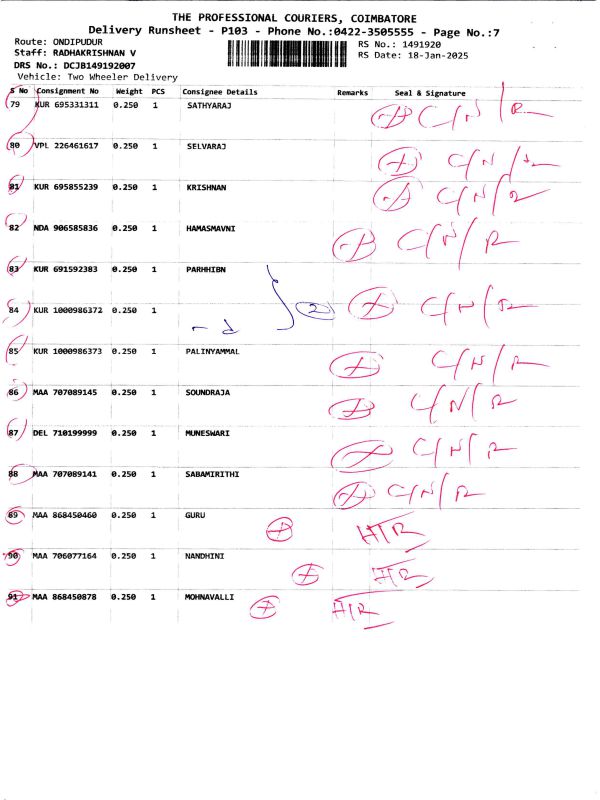 THE PROFESSIONAL COURIERS, COIMBATORE
Delivery Runsheet - P103 - Phone No.:0422-3505555 - Page No.:7
Route: ONDIPUDUR RS No.: 1491920
Staff: RADHAKRISHNAN V RS Date: 18-Jan-2025
DRS No.: DCJB149192007
Vehicle: Two Wheeler Delivery
S No Consignment No Weight PCS Consignee Details Remarks Seal & Signature
79 KUR 695331311 0.250 1 SATHYARAJ C/N/R
80 VPL 226461617 0.250 1 SELVARAJ C/N/R
81 KUR 695855239 0.250 1 KRISHNAN C/N/R
82 NDA 906585836 0.250 1 HAMASMAVNI C/N/R
83 KUR 691592383 0.250 1 PARHHIBN
84 KUR 1000986372 0.250 1 2 C/N/R
85 KUR 1000986373 0.250 1 PALINYAMMAL C/N/R
86 MAA 707089145 0.250 1 SOUNDRAJA C/N/R
87 DEL 710199999 0.250 1 MUNESWARI C/N/R
88 MAA 707089141 0.250 1 SABAMIRITHI C/N/R
89 MAA 868450460 0.250 1 GURU HTR
90 MAA 706077164 0.250 1 NANDHINI HTR
91 MAA 868450878 0.250 1 MOHNAVALLI HTR